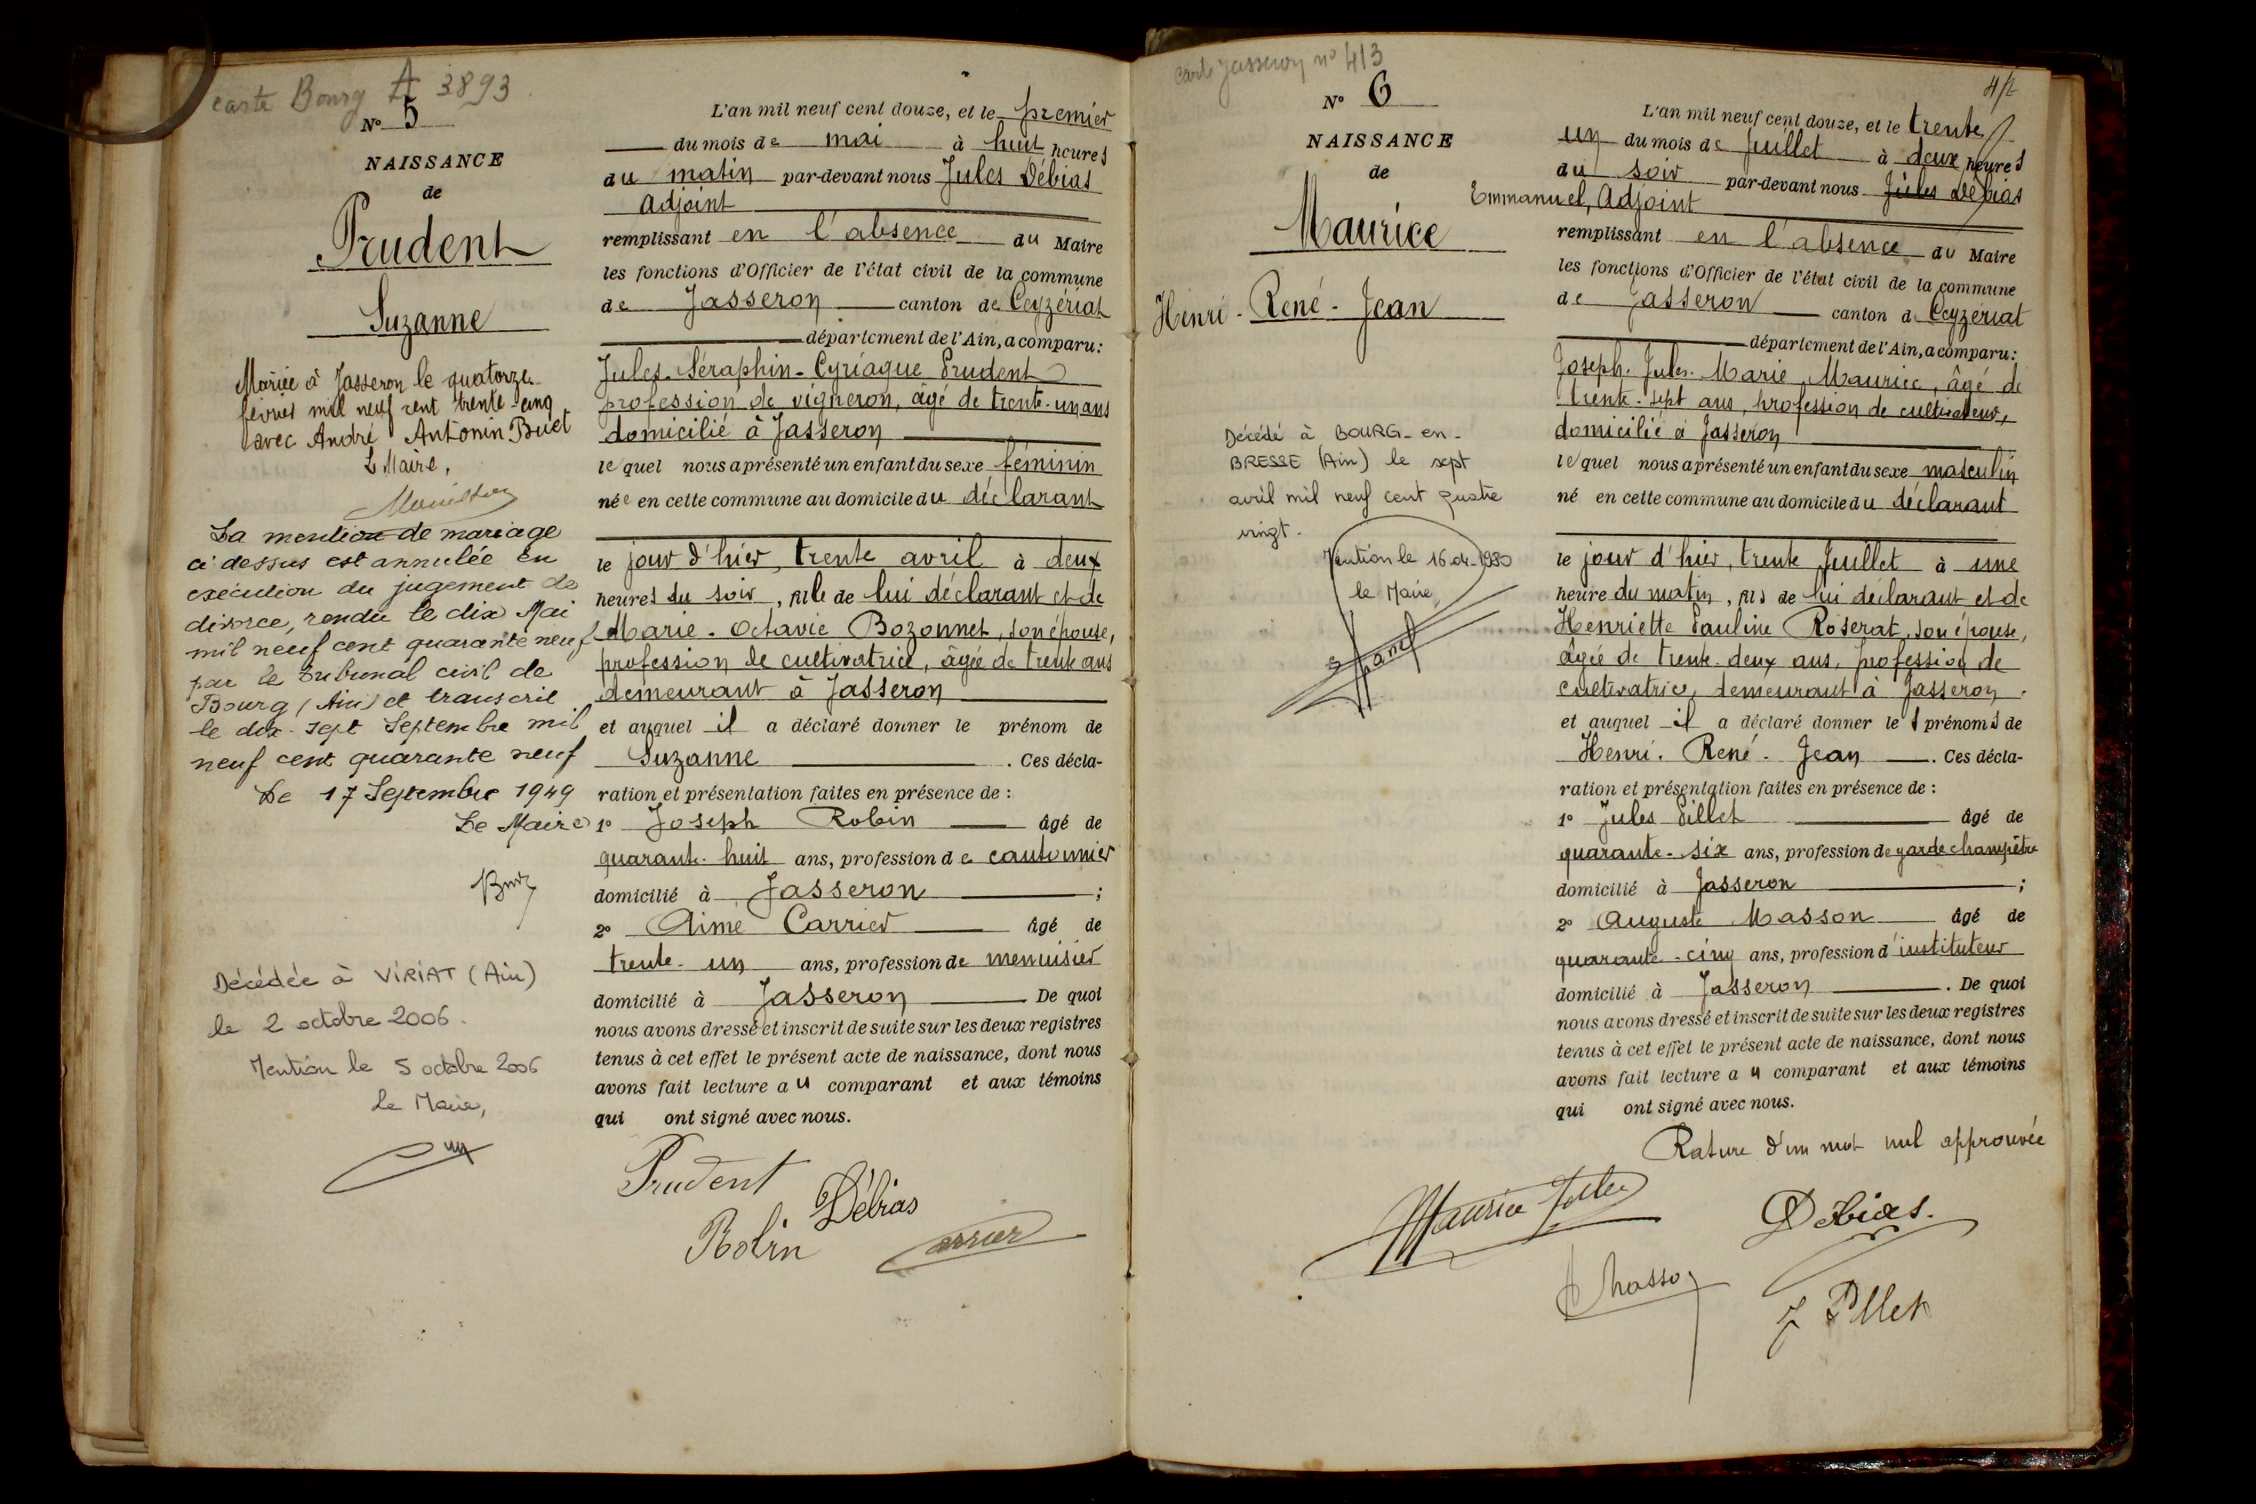 carte Bourg A 3893
N° 5
NAISSANCE
de
Prudent
Suzanne
Mariée à Jasseron le quatorze
février mil neuf cent trente-cinq
avec André Antonin Buet
Le Maire,
La mention de mariage
ci dessus est annulée en
exécution du jugement de
divorce, rendu le dix Mai
mil neuf cent quarante neuf
par le Tribunal civil de
Bourg (Ain) et transcrit
le dix-sept Septembre mil
neuf cent quarante neuf
Le 17 Septembre 1949
Le Maire
Décédée à VIRIAT (Ain)
le 2 octobre 2006.
Mention le 5 octobre 2006
Le Maire,
L'an mil neuf cent douze, et le premier
du mois de mai à huit heures
du matin par-devant nous Jules Débias
Adjoint
remplissant en l'absence du Maire
les fonctions d'Officier de l'état civil de la commune
de Jasseron canton de Ceyzériat
département de l'Ain, a comparu :
Jules-Séraphin-Cyriaque Prudent
profession de vigneron, âgé de trente-un ans
domicilié à Jasseron
lequel nous a présenté un enfant du sexe féminin
née en cette commune au domicile du déclarant
le jour d'hier, trente avril à deux
heures du soir, fille de lui déclarant et de
Marie-Octavie Bozonnet, son épouse,
profession de cultivatrice, âgée de trente ans
demeurant à Jasseron
et auquel il a déclaré donner le prénom de
Suzanne . Ces décla-
ration et présentation faites en présence de :
1° Joseph Robin âgé de
quarante-huit ans, profession de cantonnier
domicilié à Jasseron ;
2° Aimé Carrier âgé de
trente-un ans, profession de menuisier
domicilié à Jasseron De quoi
nous avons dressé et inscrit de suite sur les deux registres
tenus à cet effet le présent acte de naissance, dont nous
avons fait lecture au comparant et aux témoins
qui ont signé avec nous.
Prudent
Débias
Robin
Carrier
carte Jasseron n° 413
N° 6
NAISSANCE
de
Maurice
Henri-René-Jean
Décédé à BOURG-en-
BRESSE (Ain) le sept
avril mil neuf cent quatre
vingt.
Mention le 16-04-1980
le Maire,
4/2
L'an mil neuf cent douze, et le trente
un du mois de Juillet à deux heures
du soir par-devant nous Jules Débias
Emmanuel, Adjoint
remplissant en l'absence du Maire
les fonctions d'Officier de l'état civil de la commune
de Jasseron canton d Ceyzériat
département de l'Ain, a comparu :
Joseph-Jules-Marie Maurice, âgé de
trente-sept ans, profession de cultivateur,
domicilié à Jasseron
lequel nous a présenté un enfant du sexe masculin
né en cette commune au domicile du déclarant
le jour d'hier, trente Juillet à une
heure du matin, fils de lui déclarant et de
Henriette Pauline Roserat, son épouse,
âgée de trente-deux ans, profession de
cultivatrice, demeurant à Jasseron.
et auquel il a déclaré donner les prénoms de
Henri-René-Jean . Ces décla-
ration et présentation faites en présence de :
1° Jules Pillet âgé de
quarante-six ans, profession de garde champêtre
domicilié à Jasseron ;
2° Auguste Masson âgé de
quarante-cinq ans, profession d'instituteur
domicilié à Jasseron . De quoi
nous avons dressé et inscrit de suite sur les deux registres
tenus à cet effet le présent acte de naissance, dont nous
avons fait lecture au comparant et aux témoins
qui ont signé avec nous.
Rature d'un mot nul approuvée
Maurice
Débias.
Masson
J Pillet